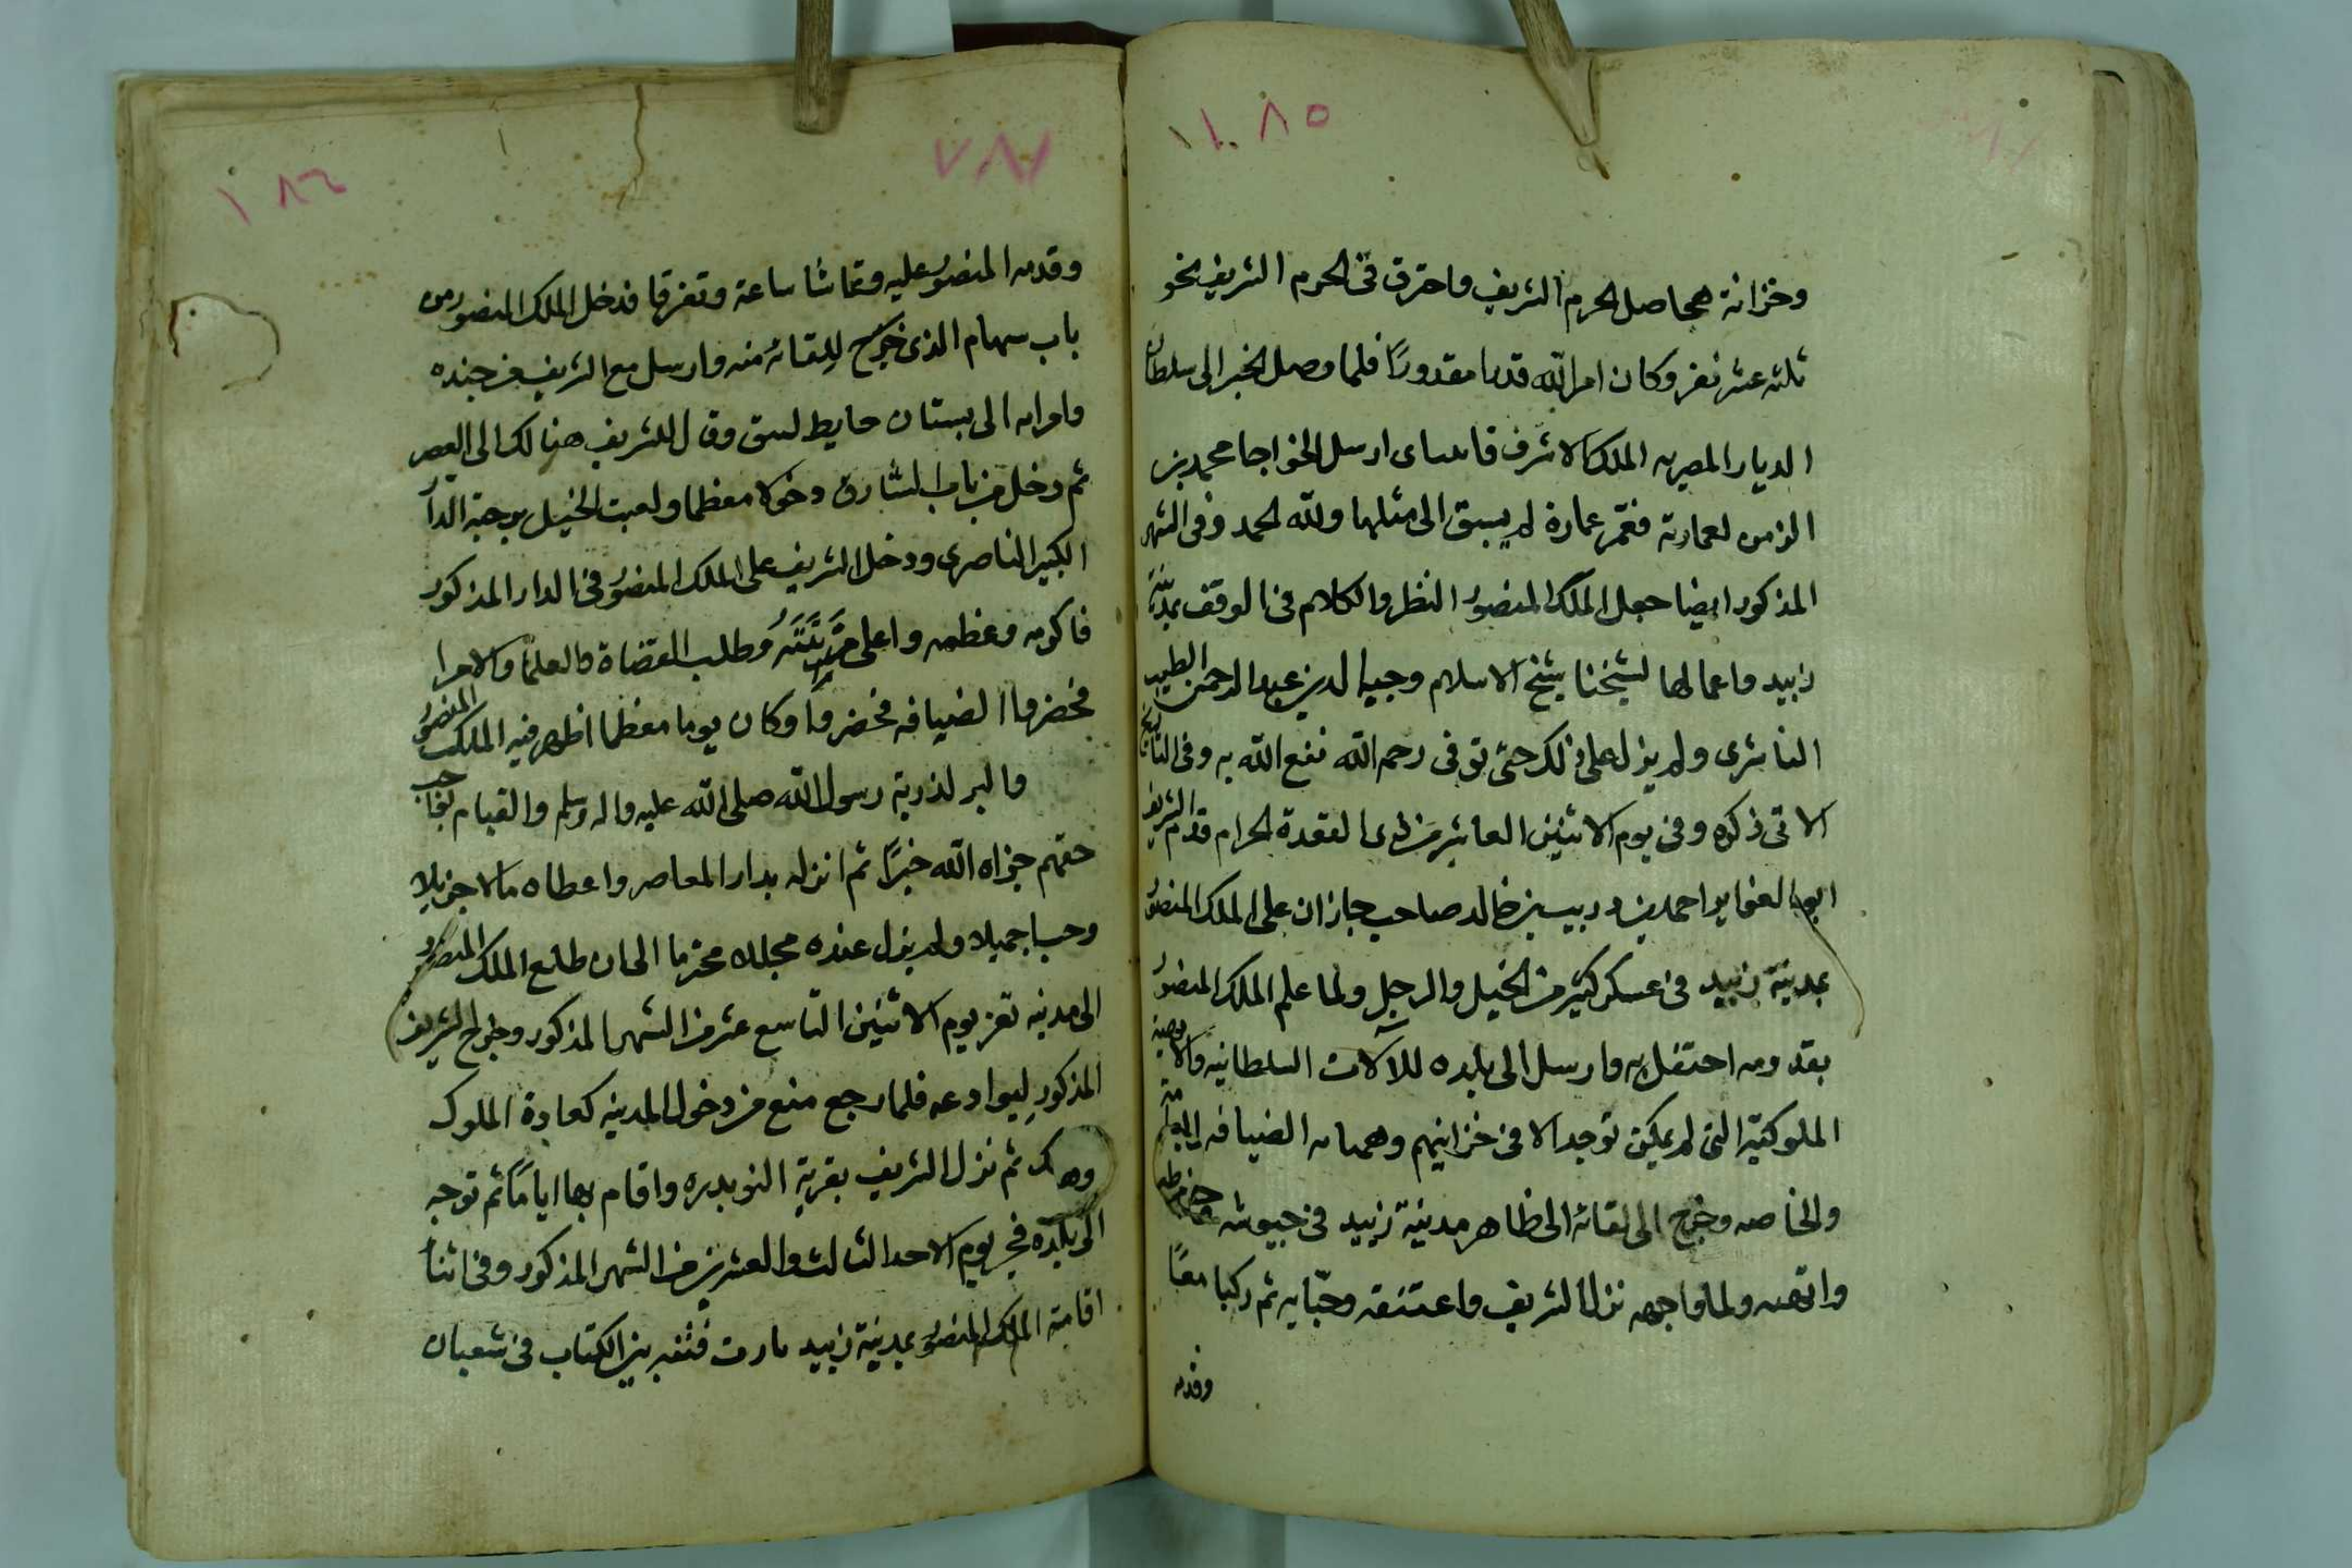 ١٠٨٥
وخزانة بحاصل الحرم الشريف واحترق في الحرم الشريف نحو
ثلثه عشر نفر وكان امر الله قدرا مقدورًا فلما وصل الخبر الى سلطان
الديار المصريه الملك الاشرف قايتباى ارسل الخواجا محمد بن
الزمن لعمارته فعمّر عمارة لم يسبق الى مثلها ولله الحمد وفى الشهر
المذكور ايضا جعل الملك المنصور النظر والكلام فى الوقف بمدينة
زبيد واعمالها لشيخنا شيخ الاسلام وجيه الدين عبد الرحمن الطيب
الناشرى ولم يزل على ذلك حتى توفى رحمه الله نفع الله به وفى التاريخ
الاتى ذكره وفى يوم الاثنين العاشر من ذى القعدة الحرام قدم الشريف
ابو الغواير احمد بن دريب بن خالد صاحب جازان على الملك المنصور
بمدينة زبيد فى عسكر كثير من الخيل والرجل ولما علم الملك المنصور
بقدومه احتفل به وارسل الى بلده للآلات السلطانيه والا
الملوكتيه التى لم يمكن توجد الا فى خزاينهم وهياله الضيافه العامّة
والخاصه وخرج الى لقائه الى ظاهر مدينة زبيد فى جيوشه
ولما واجهه نزل الشريف واعتنقه وحيّا به ثم ركبا معًا
وقدمه
٧٨٧
١٨٦
وقدمه المنصور عليه وتماشا ساعة وتفرقا فدخل الملك المنصور من
باب سهام الذى خرج للقائه منه وارسل مع الشريف من جنده
وامرايه الى بستان حايط لبيق وقال للشريف هنالك الى العصر
ثم دخل من باب الشبارق دخولا معظما ولعبت الخيل بوجبة الدار
الكبير الناصرى ودخل الشريف على الملك المنصور فى الدار المذكور
فاكرمه وعظمه واعلى مَرتبَتَهُ وطلب القضاة والعلما والامرا
فحضروا الضيافه فحضروا وكان يوما معظما اظهر فيه الملك المنصور
والبر لذرية رسول الله صلى الله عليه واله وسلم والقيام بواجب
حقهم جزاه الله خيرًا ثم انزله بدار المعاصر واعطاه مالا جزيلا
وحبا جميلا ولم يزل عنده مجللا محترما الى ان طلع الملك المنصور
الى مدينه تعز يوم الاثنين التاسع عشر من الشهر المذكور وخرج الشريف
المذكور ليوادعه فلما رجع منع من دخول المدينه كعادة الملوك
ثم نزل الشريف بقرية النويدره واقام بها ايامًا ثم توجه
الى بلده فجر يوم الاحد الثالث والعشرين من الشهر المذكور وفى اثنا
اقامة الملك المنصور بمدينة زبيد بارت فتنه بين الكتاب فى شعبان